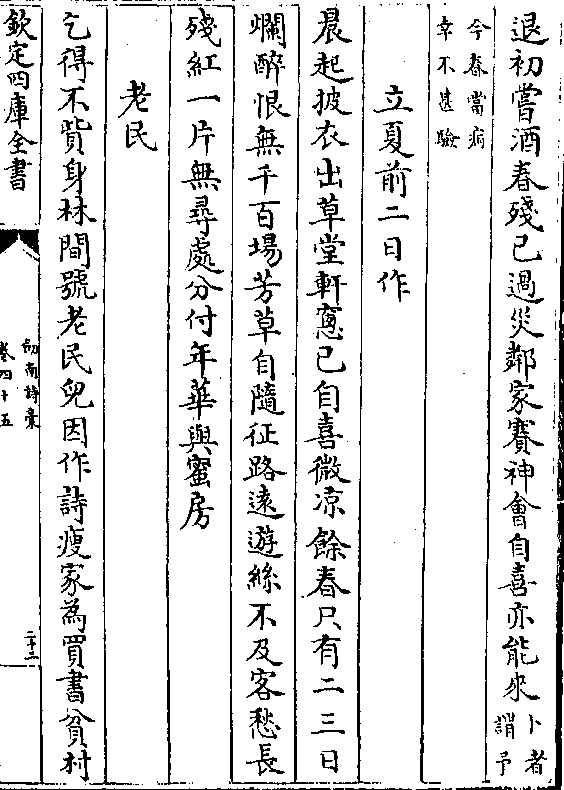 退初嘗酒春殘已過災鄰家賽神會自喜亦能來卜者謂予
今春當病幸不甚驗
立夏前二日作
晨起披衣出草堂軒窻已自喜微凉餘春只有二三日
爛醉恨無千百場芳草自隨征路遠遊絲不及客愁長
殘紅一片無尋處分付年華與蜜房
老民
乞得不貲身林間號老民兒因作詩瘦家為買書貧村
欽定四庫全書
劍南詩稾
卷四十五
二十二